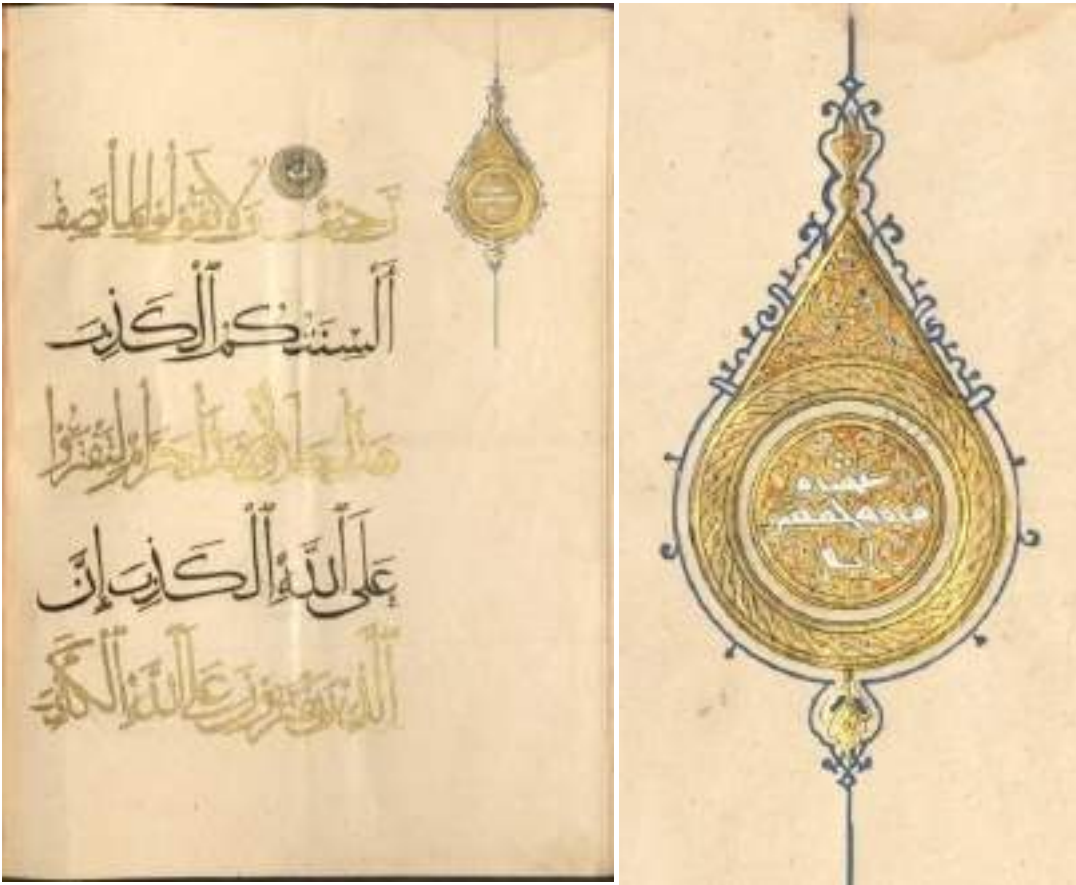 رحيم ولا تقولوا لما تصف
ألسنتكم الكذب
هذا حلل وهذا حرام لتفتروا
على الله الكذب إن
الذين يفترون على الله الكذب
عشره